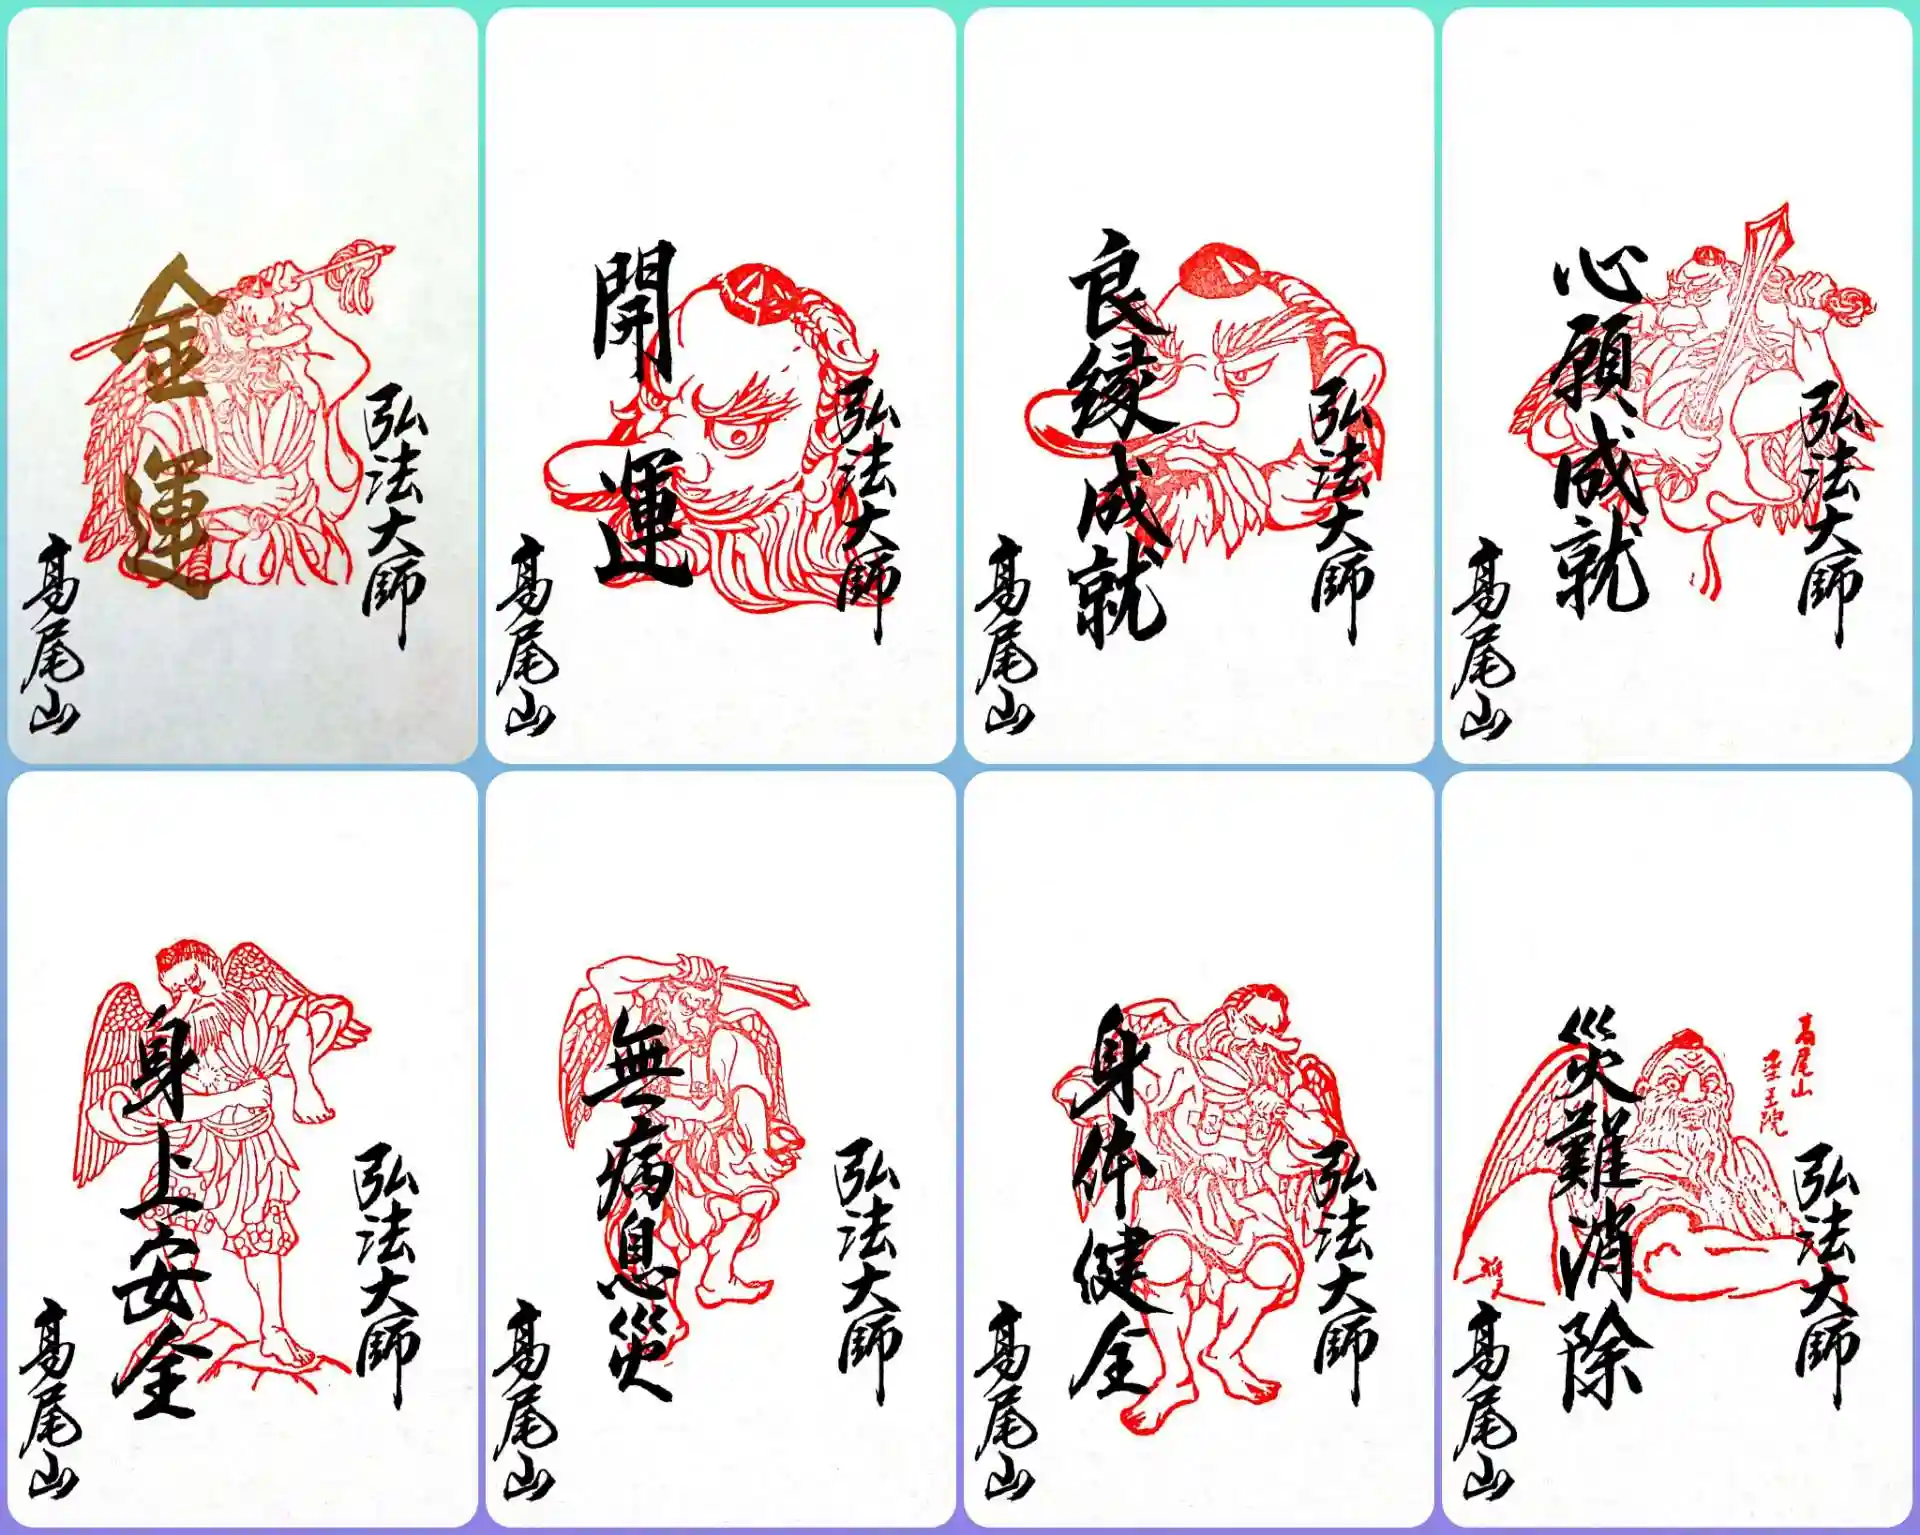 弘法大師
金運
高尾山
弘法大師
開運
高尾山
弘法大師
良縁成就
高尾山
弘法大師
心願成就
高尾山
弘法大師
身上安全
高尾山
弘法大師
無病息災
高尾山
弘法大師
身体健全
高尾山
弘法大師
高尾山
薬王院
災難消除
高尾山